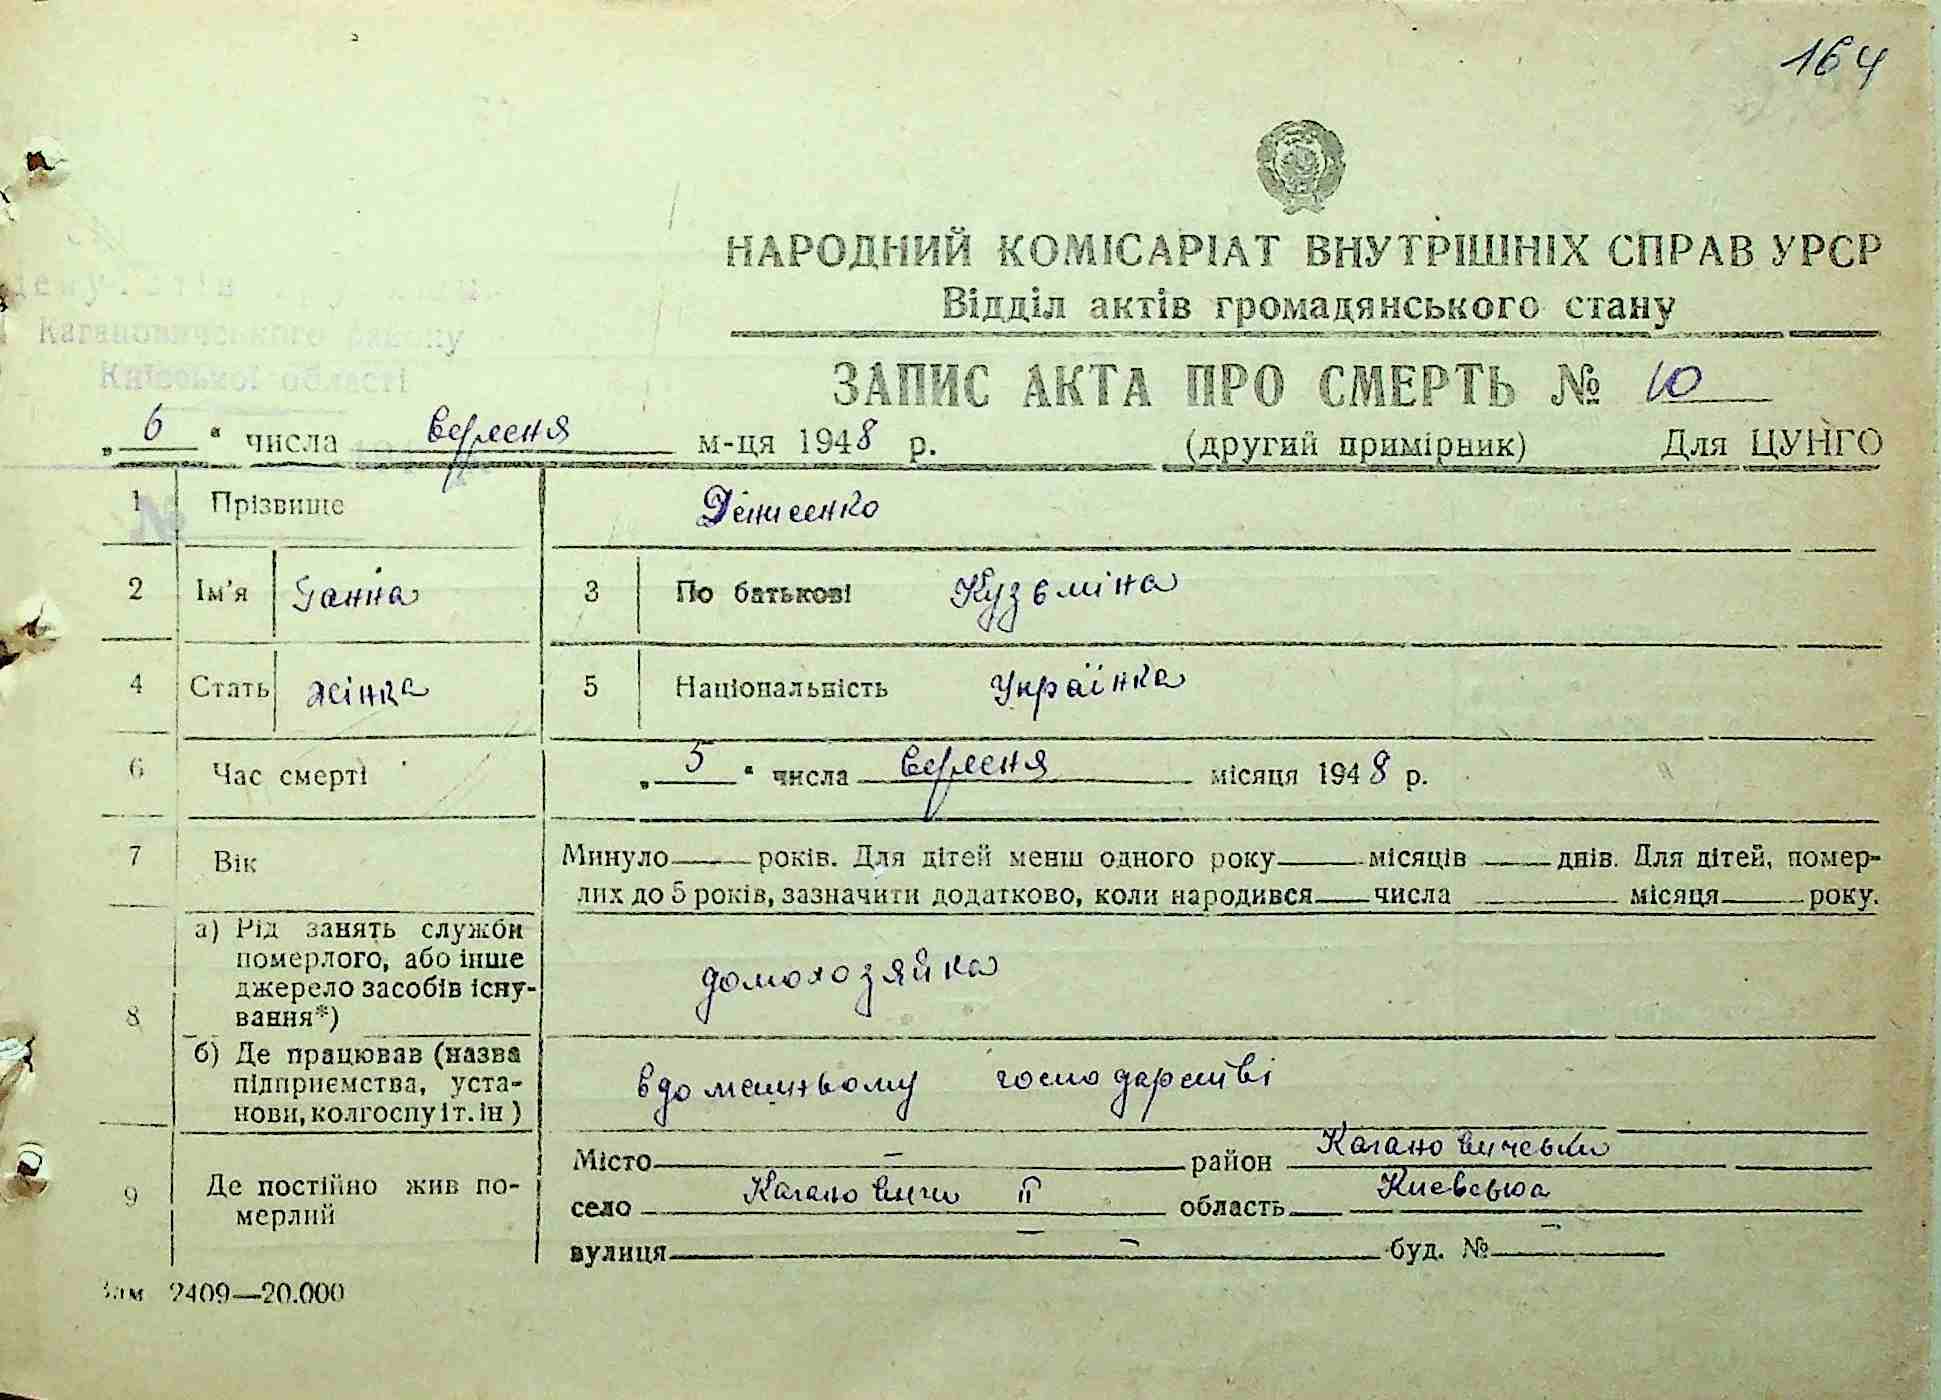 164
НАРОДНИЙ КОМІСАРІАТ ВНУТРІШНІХ СПРАВ УРСР
Відділ актів громадянського стану
Кагановичського району
Київської області
ЗАПИС АКТА ПРО СМЕРТЬ № 10
„ 6 “ числа вересня м-ця 1948 р. (другий примірник) Для ЦУНГО
№
1 Прізвище Денисенко
2 Ім'я Ганна 3 По батькові Кузьміна
4 Стать жінка 5 Національність Українка
6 Час смерті „ 5 “ числа вересня місяця 1948 р.
7 Вік Минуло років. Для дітей менш одного року місяців днів. Для дітей, помер-
лих до 5 років, зазначити додатково, коли народився числа місяця року.
8 а) Рід занять служби
померлого, або інше
джерело засобів існу-
вання*)
домохозяйка
б) Де працював (назва
підприємства, уста-
нови, колгоспу і т. ін)
в домашньому господарстві
9 Де постійно жив по-
мерлий
Місто – район Кагановичеський
село Кагановичи II область Киевська
вулиця – буд. № –
Зам 2409—20.000